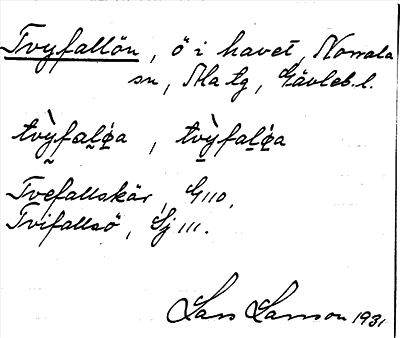 Tvyfallön, ö i havet, Norrala
sn, Ala tg, Gävleb. l.
tvỳfalø̀a, tvỳfalø̀a
Tvefallskär, G 110,
Tvifallsö, Sj 111.
Lars Larsson 1931